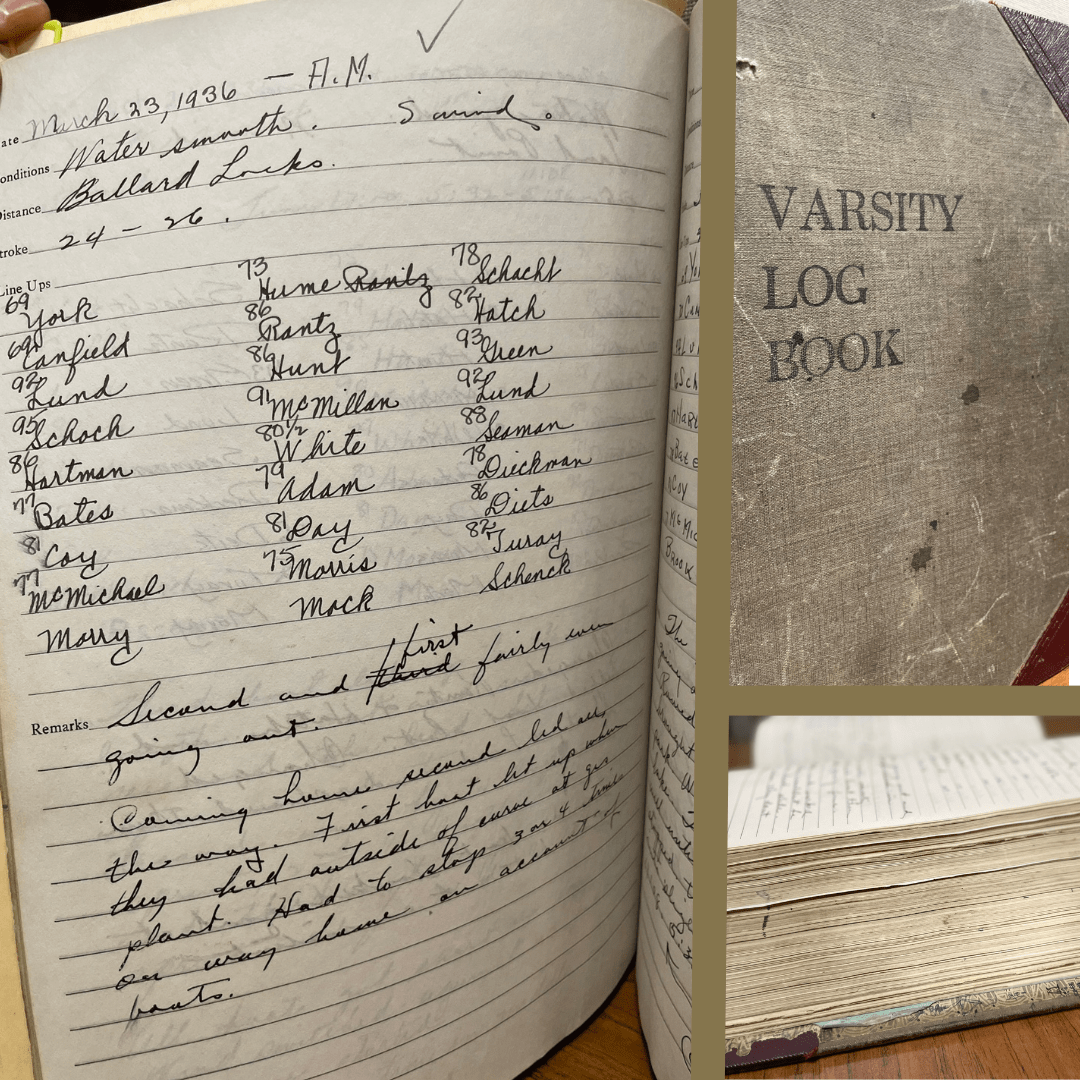 Date March 23, 1936 — A.M.
Conditions Water smooth. S wind.
Distance Ballard Locks.
Stroke 24 - 26.
Line Ups
69 York
69 Canfield
92 Lund
95 Schoch
86 Hartman
77 Bates
81 Coy
77 McMichael
Morry
73 Hume Rantz
86 Rantz
86 Hunt
91 McMillan
80 1/2 White
79 Adam
81 Day
75 Morris
Mock
78 Schacht
82 Hatch
93 Green
92 Lund
88 Seaman
78 Dieckman
86 Diets
82 Turay
Schenck
first
Remarks Second and third fairly even
going out.
Coming home second led all
the way. First boat let up when
they had outside of curve at gas
plant. Had to stop 3 or 4 times
on way home on account of
boats.
VARSITY
LOG
BOOK